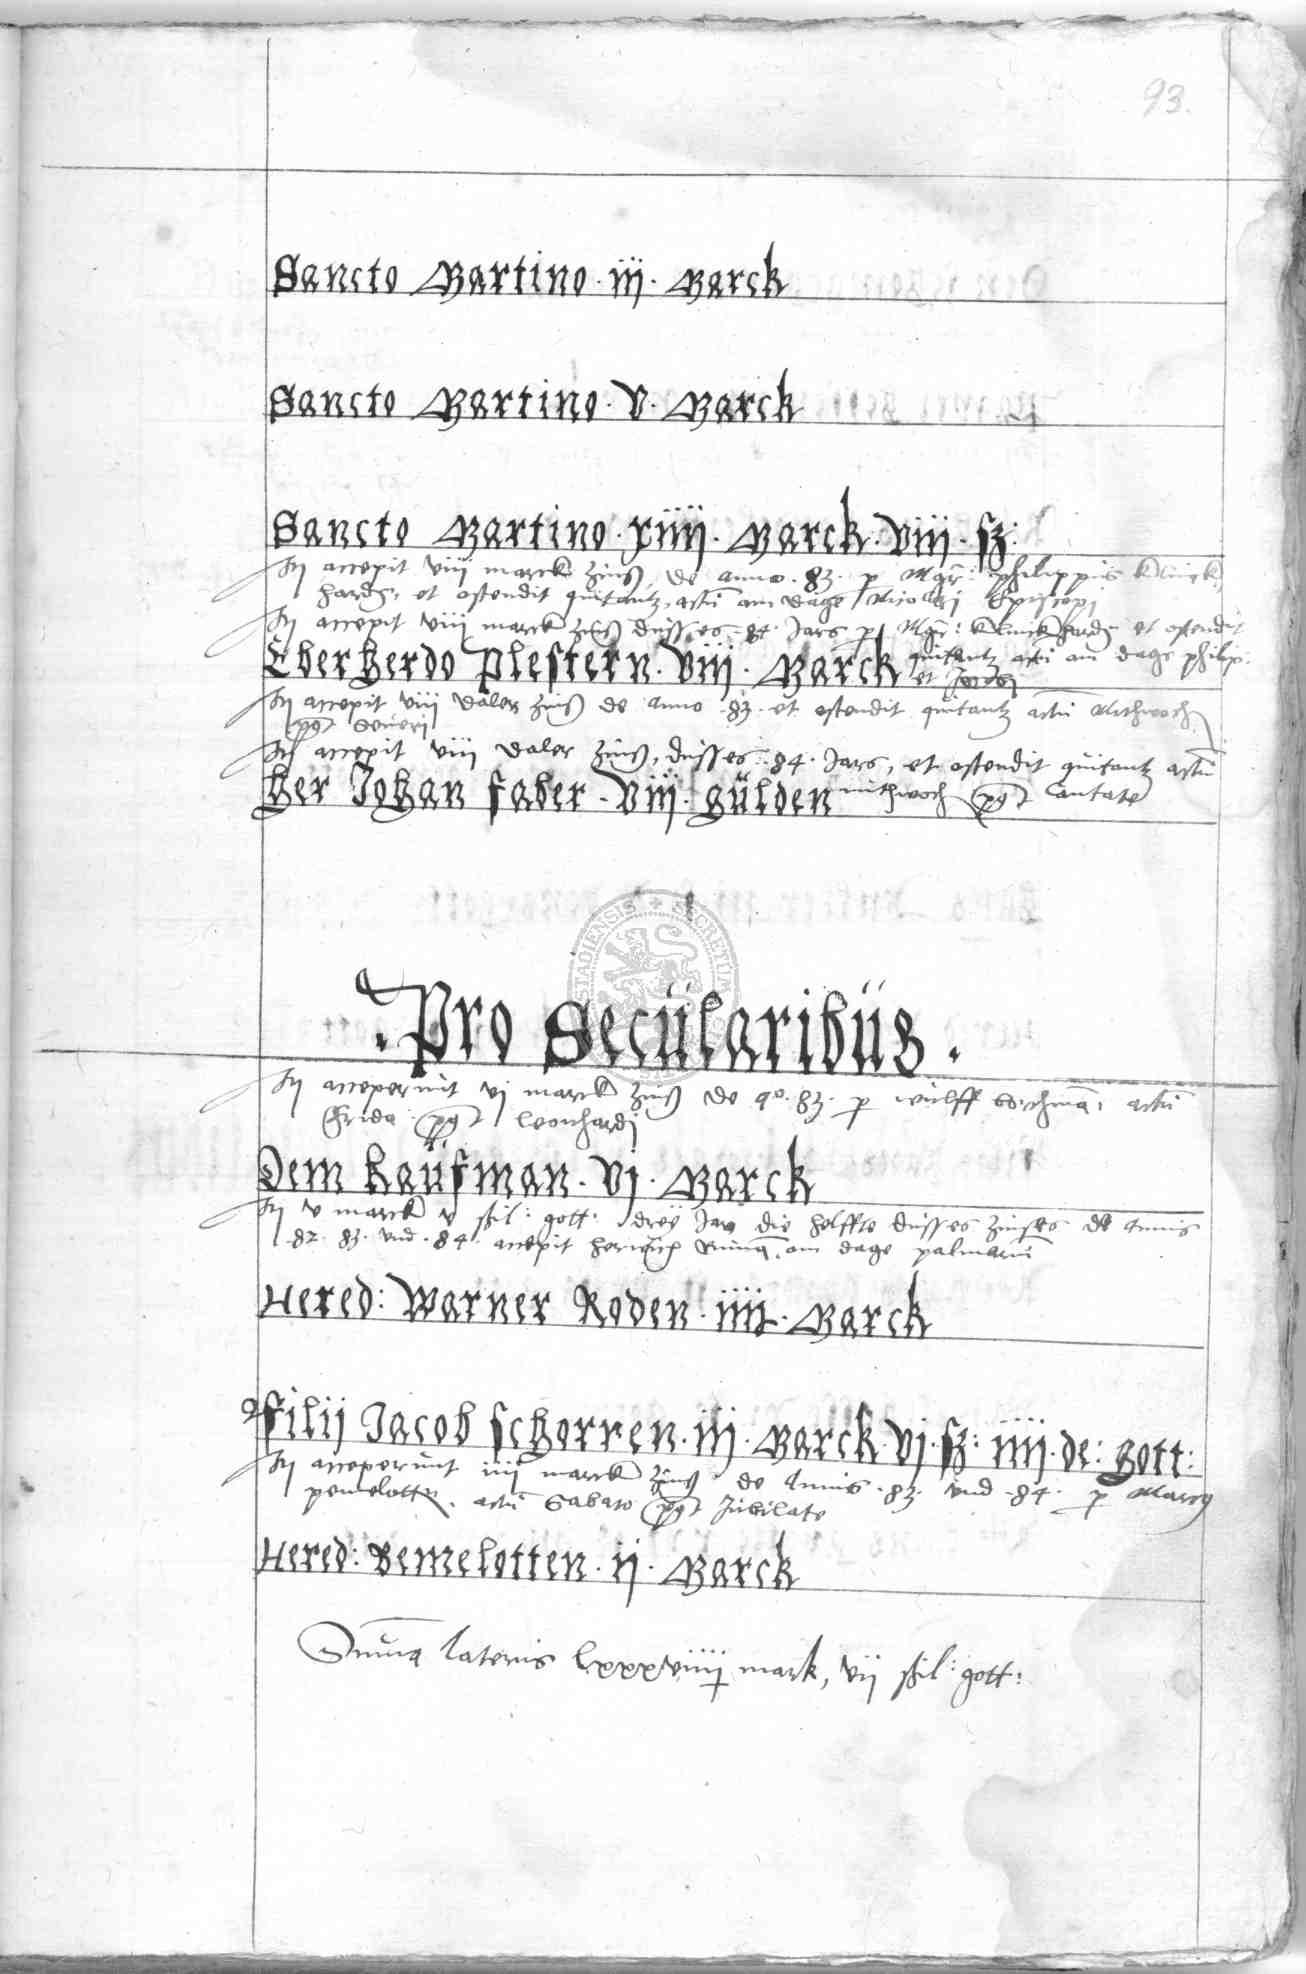 93.
Sancto Martino · iij · Marck
Sancto Martino · V · Marck
Sancto Martino · xiiij · Marck · viij · sz:
accepit viij marck zinß, de anno · 83 · p Mgr: philippus Klinck
hardz, et ostendit quitantz, actū am dage Nicolai Episcopi
accepit viij marck zinß dusses · 84 · Jars p Mgr: Klinckhardz et ostendit
quitantz actū am dage philip:
et Jacobi
Eberherdo Plestern · viij · Marck
accepit viij daler zinß de anno · 83 · et ostendit quitantz actū Mithwoch
pꝫt Seueri
accepit viij daler zinß, dusses · 84 · Jars, et ostendit quitantz actū
mithwoch pꝫt Cantate
Her Johan faber · Viij · gülden
STADIENSIS SECRETUM
· Pro Secularibus ·
acceperunt vj marck zinß de aº · 83 · p wulff actū
frida pꝫt leonhardj
Dem kaufman · Vj · Marck
v marck v ßil: gott: drey Jar die helffte dusses zinses de annis
· 82 · 83 · vnd · 84 · accepit am dage palmarū
Hered: Warner Roden · iiij · Marck
filij Jacob schorren · iij · Marck vj · sz: iiij · de: gott:
acceperunt iiij marck zinß de Annis · 83 · vnd · 84 · p
pemelotten, actū Sabato pꝫt Jubilate
Hered: Bemelotten · ij · Marck
Suma lateris lxxxviiij mark, vij ßil: gott: